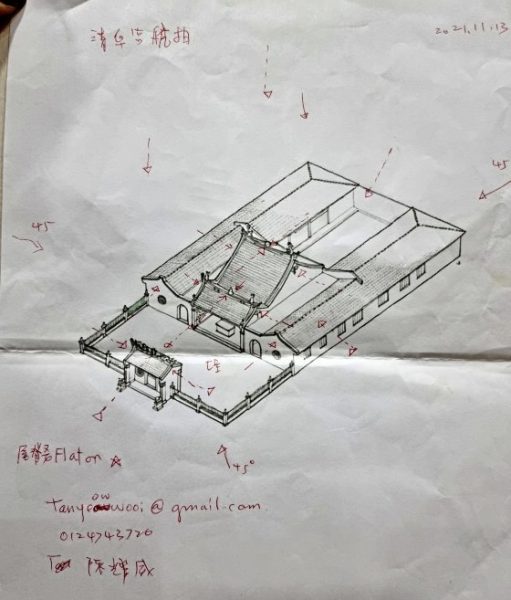 清华宫航拍
2021.11.13
45
45
埕
45°
Flat on
tanyeowwooi@gmail.com
0124743720
陳耀威